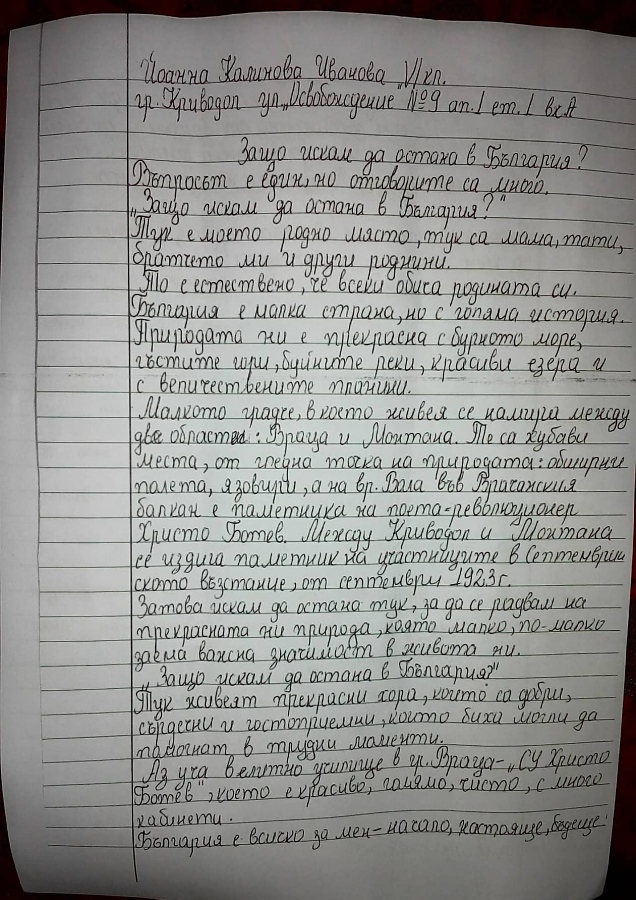 Йоанна Калинова Иванова VI кл.
гр. Криводол ул. „Освобождение №9 ап.1 ет.1 вх.А
Защо искам да остана в България?
Въпросът е един, но отговорите са много.
„Защо искам да остана в България?"
Тук е моето родно място, тук са мама, тати,
братчето ми и други роднини.
То е естествено, че всеки обича родината си.
България е малка страна, но с голяма история.
Природата ни е прекрасна с бурното море,
гъстите гори, буйните реки, красиви езера и
с величествените планини.
Малкото градче, в което живея се намира между
две области: Враца и Монтана. Те са хубави
места, от гледна точка на природата: обширни
полета, язовири, а на вр. Вола във Врачанския
балкан е паметника на поета-революционер
Христо Ботев. Между Криводол и Монтана
се издига паметник на участниците в Септемврий
ското възстание, от септември 1923г.
Затова искам да остана тук, за да се радвам на
прекрасната ни природа, която малко, по-малко
заема важна значимост в живота ни.
„Защо искам да остана в България?"
Тук живеят прекрасни хора, които са добри,
сърдечни и гостоприемни, които биха могли да
помогнат в трудни моменти.
Аз уча в елитно училище в гр. Враца - „СУ Христо
Ботев", което е красиво, голямо, чисто, с много
кабинети.
България е всичко за мен - начало, настояще, бъдеще.